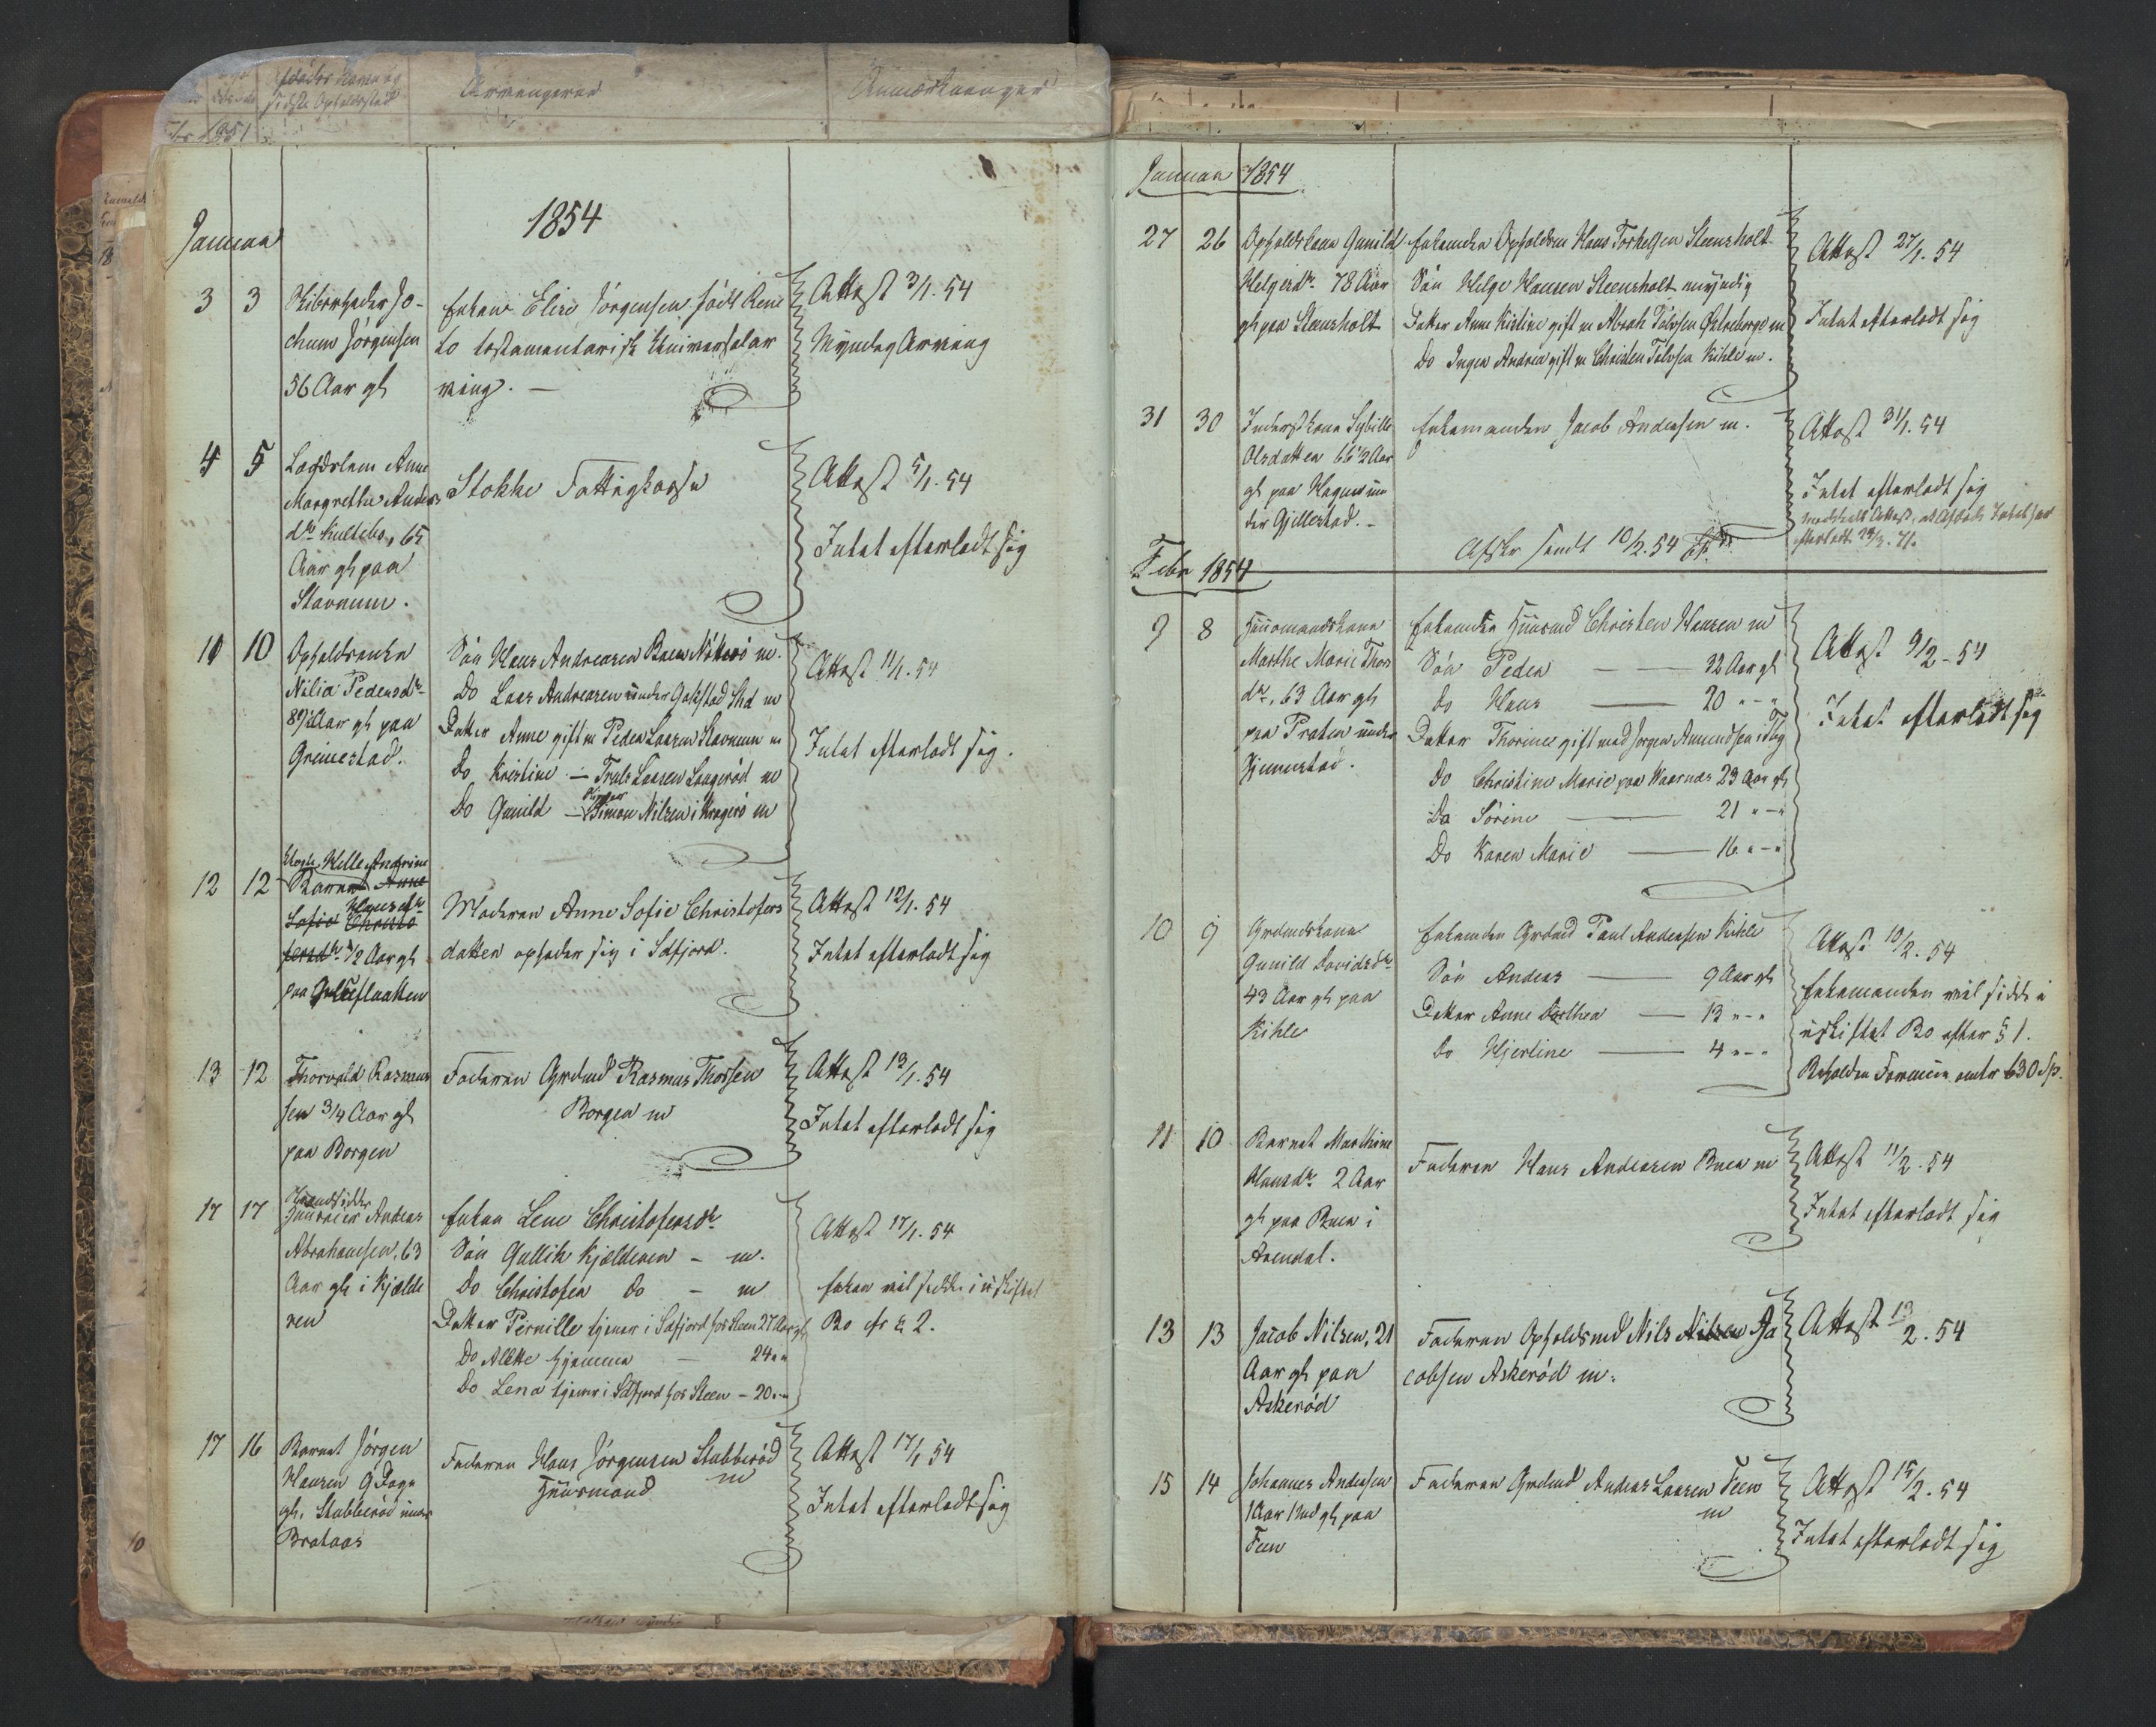 Afdødes Navn og
sidste Opholdssted
Arvingerne
Anmærkninger
1851
1854
Januar
3 3 Skibsrheder Jo-
chum Jørgensen
56 Aar gl
Enken Elise Jørgensen født
testamentarisk Universalar
ving. —
Attest 3/1. 54
Myndig Arving
4 5 Lægdslem Anne
Margrethe Anders
dr. 65
Aar gl paa
Stavnum.
Stokke Fattigkasse
Attest 5/1. 54
Intet efterladt sig
11 10 Opholdsenke
Nilia Pedersdr.
89 1/2 Aar gl paa
Greinestad.
Søn Hans Andreasen Nøterø m.
Do Lars Andreasen under Gokstad m
Datter Anne gift m Peder Larsen Stavnum m
Do Kristine — Truls Larsen Laagerød m
Do Gunild — Simon Nilsen i Kragerø m
Attest 11/1. 54
Intet efterladt sig.
12 12 Helle Andrine
Barnet Anne
Hansdr
Sofie Christo
fersdr 1/2 Aar gl
paa
Moderen Anne Sofie Christofers
datter opholder sig i Sdfjord.
Attest 12/1. 54
Intet efterladt sig
13 12 Thorvald Rasmus
sen 3/4 Aar gl
paa Borgen
Faderen Grdmd Rasmus Thorsen
Borgen m
Attest 13/1. 54
Intet efterladt sig
17 17 Strandsidder
Anders
Abrahamsen, 63
Aar gl i Kjælde
ren
Enken Lene Christofersdr.
Søn Gullik Kjælderen — m.
Do Christofer Do — m
Datter Pernille tjener i Sdfjord hos Steen 27 Aar gl
Do Alette hjemme — 24 " "
Do Lena tjener i Sdfjord hos Steen — 20 " "
Attest 17/1. 54
Enken vil sidde i uskiftet
Bo efr § 2.
17 16 Barnet Jørgen
Hansen 9 Dage
gl. Stubberød under
Brataas
Faderen Hans Jørgensen Stubberød
Huusmand m
Attest 17/1 54
Intet efterladt sig
Januar 1854
27 26 Opholdskone Gunild
Helgesdr. 78 Aar
gl paa Steensholt
Enkemden Opholdsm Hans Torkelsen Steensholt
Søn Helge Hansen Steensholt myndig
Datter Anne Kirstine gift m Abrah Tolvsen m
Do Inger Andrea gift m Christen Tolvsen Kihle m.
Attest 27/1. 54
Intet efterladt sig
31 30 Inderstkone Sybille
Olsdatter 66 1/2 Aar
gl paa Hagen un
der Gjellestad. —
Enkemanden Jacob Andersen m.
Attest 31/1. 54
Intet efterladt sig
meddeelt Attest, at Afdøde Intet har
efterladt
Afskr sendt 10/2. 54
Febr 1854
9 8 Huusmandskone
Marthe Marie Thors
dr. 63 Aar gl
paa Praten under
Gjennestad.
Enkemden Huusmd Christen Hansen m
Søn Peder — 32 Aar gl
Do Hans — 20 " — "
Datter Thorine gift med Jørgen Amundsen i
Do Christine Marie paa Kaarnæs 23 Aar gl
Do Sørine — 21 " — "
Do Karen Marie — 16 " — "
Attest 9/2 — 54
Intet efterladt sig
10 9 Grdmdskone
Gunild Davidsdr
43 Aar gl paa
Kihle
Enkemden Grdmd Paul Andersen Kihle
Søn Anders — 9 Aar gl
Datter Anne Dorthea — 13 " — "
Do Hjertine — 4 " — "
Attest 10/2. 54
Enkemanden vil sidde i
uskiftet Bo efter § 1.
Beholden Formue omtr 630 Sp.
11 10 Barnet Marthine
Hansdr. 2 Aar
gl paa Buen i
Arendal.
Faderen Hans Andersen Buen m
Attest 11/2. 54
Intet efterladt sig
13 13 Jacob Nilsen, 21
Aar gl paa
Askerød
Faderen Opholdsmd Nils Nilsen Ja
cobsen Askerød m.
Attest 13/2. 54
15 14 Johannes Andersen
1 Aar 1 Md gl paa
Feen
Faderen Grdmd Anders Larsen Feen
m
Attest 15/2. 54
Intet efterladt sig